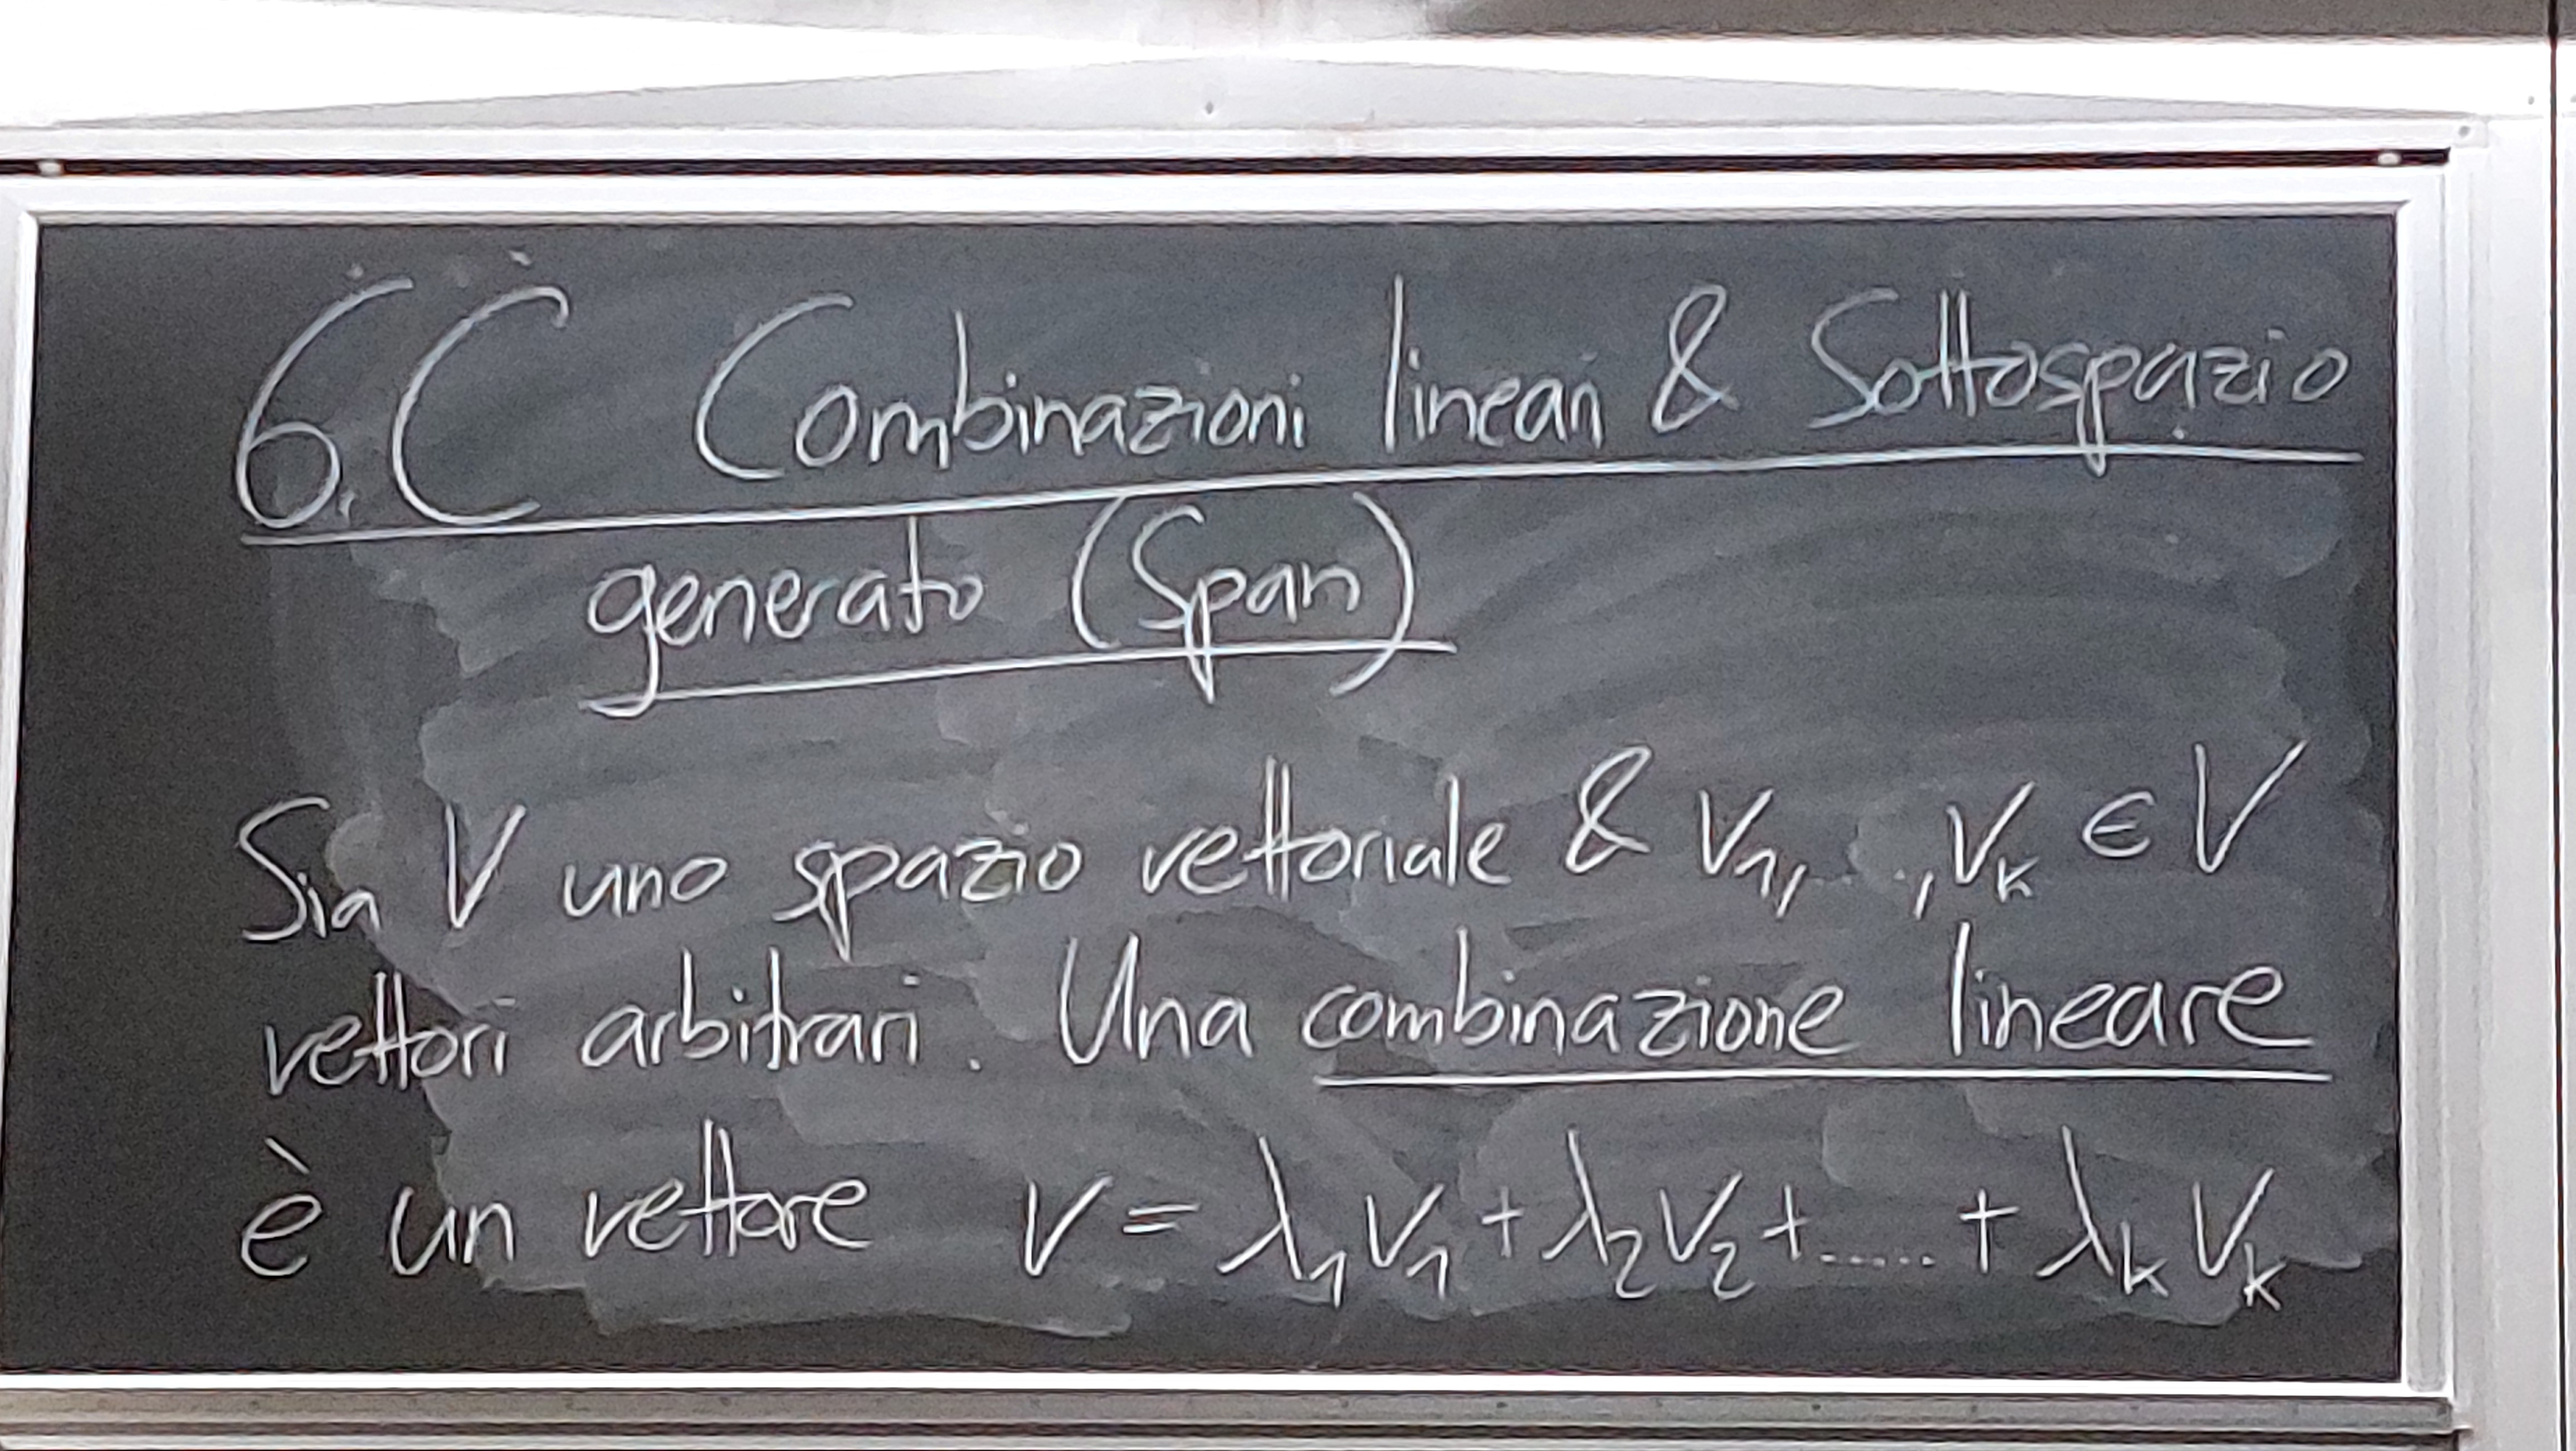 6.C Combinazioni lineari & Sottospazio
generato (Span)
Sia V uno spazio vettoriale & v₁,...,vₖ ∈ V
vettori arbitrari. Una combinazione lineare
è un vettore v = λ₁v₁ + λ₂v₂ + ...... + λₖvₖ